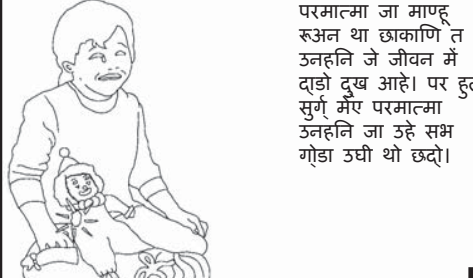 परमात्मा जा माण्हू
रूअन था छाकाणि त
उनहनि जे जीवन में
दा॒डो दु॒ख आहे। पर हुते
सुर्ग् मेंए परमात्मा
उनहनि जा उहे सभ
गो॒डा उघी थो छदो॒।